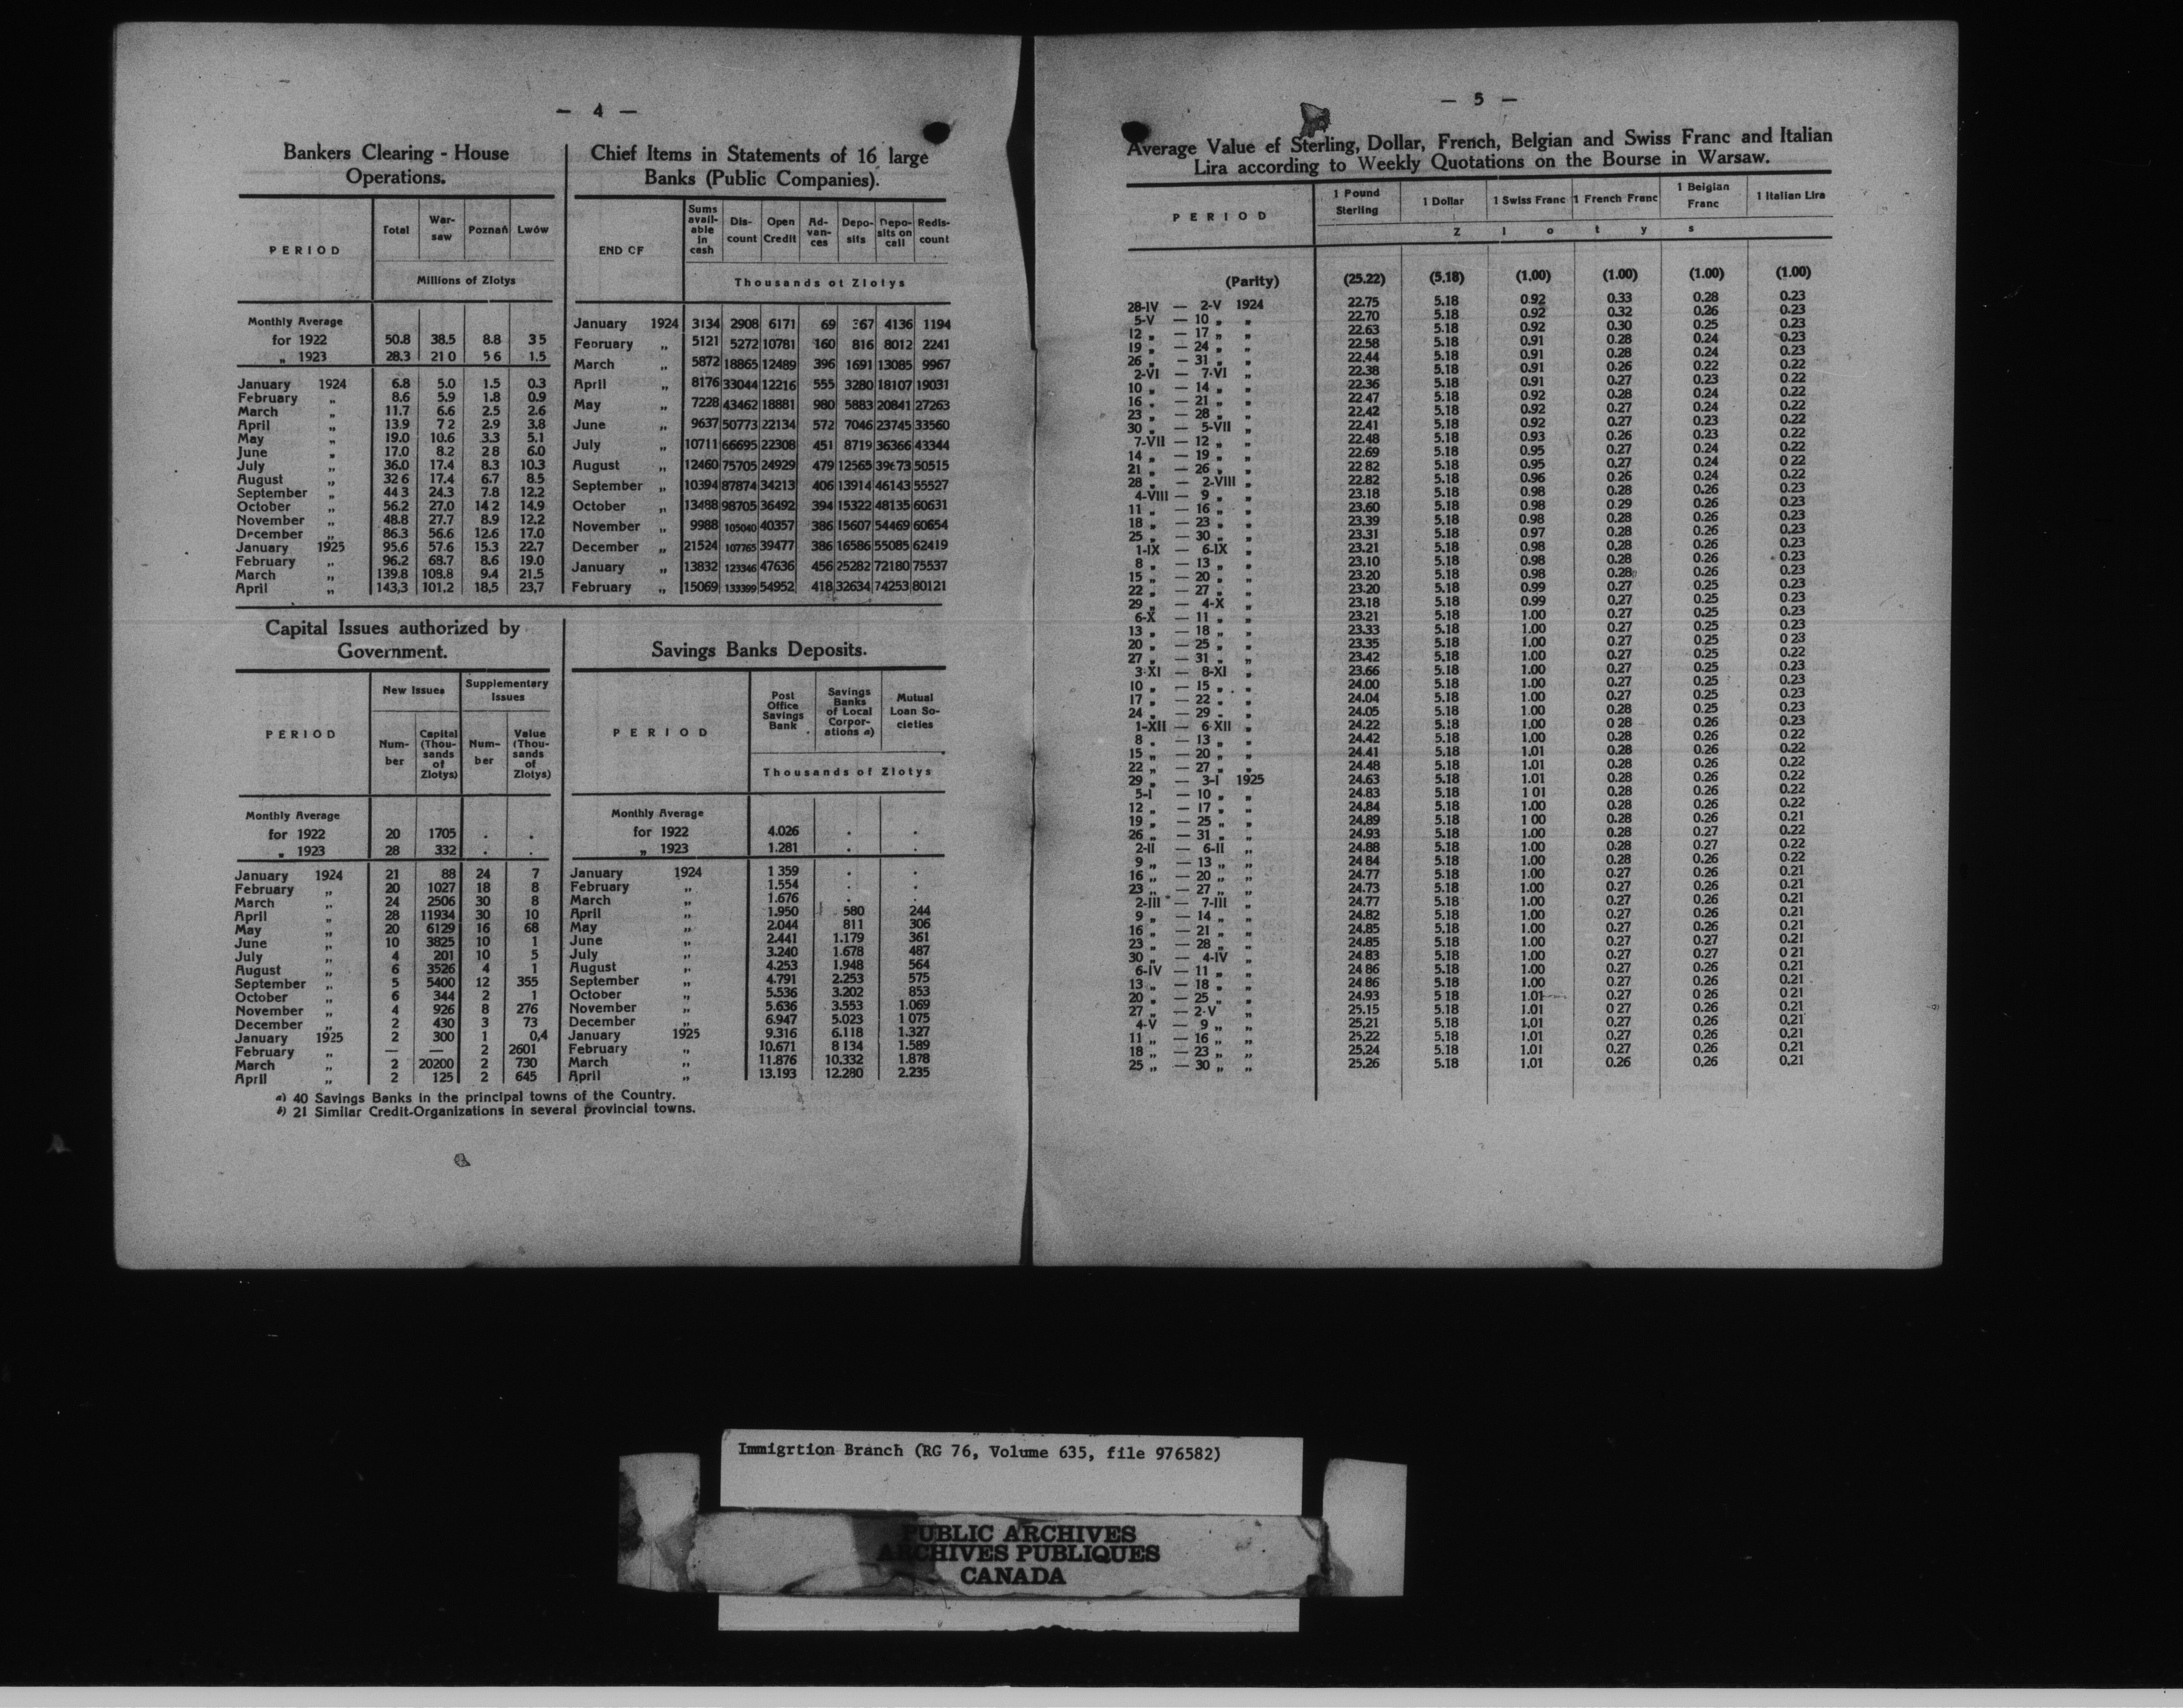 — 4 —
Bankers Clearing - House
Operations.
PERIOD Total War-saw Poznań Lwów
Millions of Zlotys
Monthly Average
for 1922 50.8 38.5 8.8 3 5
„ 1923 28.3 21 0 5 6 1.5
January 1924 6.8 5.0 1.5 0.3
February „ 8.6 5.9 1.8 0.9
March „ 11.7 6.6 2.5 2.6
April „ 13.9 7 2 2.9 3.8
May „ 19.0 10.6 3.3 5.1
June „ 17.0 8.2 2 8 6.0
July „ 36.0 17.4 8.3 10.3
August „ 32 6 17.4 6.7 8.5
September „ 44 3 24.3 7.8 12.2
October „ 56.2 27.0 14 2 14.9
November „ 48.8 27.7 8.9 12.2
December „ 86.3 56.6 12.6 17.0
January 1925 95.6 57.6 15.3 22.7
February „ 96.2 68.7 8.6 19.0
March „ 139.8 108.8 9.4 21.5
April „ 143,3 101,2 18,5 23,7
Chief Items in Statements of 16 large
Banks (Public Companies).
END OF Sums avail-able in cash Dis-count Open Credit Ad-van-ces Depo-sits Depo-sits on call Redis-count
Thousands of Zlotys
January 1924 3134 2908 6171 69 367 4136 1194
February „ 5121 5272 10781 160 816 8012 2241
March „ 5872 18865 12489 396 1691 13085 9967
April „ 8176 33044 12216 555 3280 18107 19031
May „ 7228 43462 18881 980 5883 20841 27263
June „ 9637 50773 22134 572 7046 23745 33560
July „ 10711 66695 22308 451 8719 36366 43344
August „ 12460 75705 24929 479 12565 39673 50515
September „ 10394 87874 34213 406 13914 46143 55527
October „ 13488 98705 36492 394 15322 48135 60631
November „ 9988 105040 40357 386 15607 54469 60654
December „ 21524 107765 39477 386 16586 55085 62419
January „ 13832 123346 47636 456 25282 72180 75537
February „ 15069 133399 54952 418 32634 74253 80121
Capital Issues authorized by
Government.
PERIOD New Issues Supplementary Issues
Num-ber Capital (Thou-sands of Zlotys) Num-ber Value (Thou-sands of Zlotys)
Monthly Average
for 1922 20 1705 . .
„ 1923 28 332 . .
January 1924 21 88 24 7
February „ 20 1027 18 8
March „ 24 2506 30 8
April „ 28 11934 30 10
May „ 20 6129 16 68
June „ 10 3825 10 1
July „ 4 201 10 5
August „ 6 3526 4 1
September „ 5 5400 12 355
October „ 6 344 2 1
November „ 4 926 8 276
December „ 2 430 3 73
January 1925 2 300 1 0,4
February „ — — 2 2601
March „ 2 20200 2 730
April „ 2 125 2 645
Savings Banks Deposits.
PERIOD Post Office Savings Bank Savings Banks of Local Corpor-ations a) Mutual Loan So-cieties
Thousands of Zlotys
Monthly Average
for 1922 4.026 . .
„ 1923 1.281 . .
January 1924 1 359 . .
February „ 1.554 . .
March „ 1.676 . .
April „ 1.950 580 244
May „ 2.044 811 306
June „ 2.441 1.179 361
July „ 3.240 1.678 487
August „ 4.253 1.948 564
September „ 4.791 2.253 575
October „ 5.536 3.202 853
November „ 5.636 3.553 1.069
December „ 6.947 5.023 1 075
January 1925 9.316 6.118 1.327
February „ 10.671 8 134 1.589
March „ 11.876 10.332 1.878
April „ 13.193 12.280 2.235
a) 40 Savings Banks in the principal towns of the Country.
b) 21 Similar Credit-Organizations in several provincial towns.
— 5 —
Average Value ef Sterling, Dollar, French, Belgian and Swiss Franc and Italian
Lira according to Weekly Quotations on the Bourse in Warsaw.
PERIOD 1 Pound Sterling 1 Dollar 1 Swiss Franc 1 French Franc 1 Belgian Franc 1 Italian Lira
Zlotys
(Parity) (25.22) (5.18) (1.00) (1.00) (1.00) (1.00)
28-IV — 2-V 1924 22.75 5.18 0.92 0.33 0.28 0.23
5-V — 10 „ „ 22.70 5.18 0.92 0.32 0.26 0.23
12 „ — 17 „ „ 22.63 5.18 0.92 0.30 0.25 0.23
19 „ — 24 „ „ 22.58 5.18 0.91 0.28 0.24 0.23
26 „ — 31 „ „ 22.44 5.18 0.91 0.28 0.24 0.23
2-VI — 7-VI „ 22.38 5.18 0.91 0.26 0.22 0.22
10 „ — 14 „ „ 22.36 5.18 0.91 0.27 0.23 0.22
16 „ — 21 „ „ 22 47 5.18 0.92 0.28 0.24 0.22
23 „ — 28 „ „ 22.42 5.18 0.92 0.27 0.24 0.22
30 „ — 5-VII „ 22.41 5.18 0.92 0.27 0.23 0.22
7-VII — 12 „ „ 22.48 5.18 0.93 0.26 0.23 0.22
14 „ — 19 „ „ 22.69 5.18 0.95 0.27 0.24 0.22
21 „ — 26 „ „ 22 82 5.18 0.95 0.27 0.24 0 22
28 „ — 2-VIII „ 22.82 5.18 0.96 0.26 0.24 0.22
4-VIII — 9 „ „ 23.18 5.18 0.98 0.28 0.26 0.23
11 „ — 16 „ „ 23.60 5.18 0.98 0.29 0.26 0.23
18 „ — 23 „ „ 23.39 5.18 0.98 0.28 0.26 0.23
25 „ — 30 „ „ 23.31 5.18 0.97 0.28 0.26 0.23
1-IX — 6-IX „ 23.21 5.18 0.98 0.28 0.26 0.23
8 „ — 13 „ „ 23.10 5.18 0.98 0.28 0.26 0.23
15 „ — 20 „ „ 23.20 5.18 0.98 0.28 0.26 0.23
22 „ — 27 „ „ 23.20 5.18 0.99 0.27 0.25 0.23
29 „ — 4-X „ 23.18 5.18 0.99 0.27 0.25 0.23
6-X — 11 „ „ 23.21 5.18 1.00 0.27 0.25 0.23
13 „ — 18 „ „ 23.33 5.18 1.00 0.27 0.25 0.23
20 „ — 25 „ „ 23.35 5.18 1.00 0.27 0.25 0 23
27 „ — 31 „ „ 23.42 5.18 1.00 0.27 0.25 0.22
3-XI — 8-XI „ 23.66 5.18 1.00 0.27 0.25 0.23
10 „ — 15 „ „ 24.00 5.18 1.00 0.27 0.25 0.23
17 „ — 22 „ „ 24.04 5.18 1.00 0.27 0.25 0.23
24 „ — 29 „ „ 24.05 5.18 1.00 0.28 0.25 0.23
1-XII — 6-XII „ 24.22 5.18 1.00 0 28 0.26 0.23
8 „ — 13 „ „ 24.42 5.18 1.00 0.28 0.26 0.22
15 „ — 20 „ „ 24.41 5.18 1.01 0.28 0.26 0.22
22 „ — 27 „ „ 24.48 5.18 1.01 0.28 0.26 0.22
29 „ — 3-I 1925 24.63 5.18 1.01 0.28 0.26 0.22
5-I — 10 „ „ 24.83 5.18 1 01 0.28 0.26 0.22
12 „ — 17 „ „ 24.84 5.18 1.00 0.28 0.26 0.22
19 „ — 25 „ „ 24.89 5.18 1 00 0.28 0.26 0.21
26 „ — 31 „ „ 24.93 5.18 1.00 0.28 0.27 0.22
2-II — 6-II „ 24.88 5.18 1.00 0.28 0.27 0.22
9 „ — 13 „ „ 24 84 5.18 1.00 0.28 0.26 0.22
16 „ — 20 „ „ 24.77 5.18 1.00 0.27 0.26 0.21
23 „ — 27 „ „ 24.73 5.18 1.00 0.27 0.26 0.21
2-III — 7-III „ 24.77 5.18 1.00 0.27 0.26 0.21
9 „ — 14 „ „ 24.82 5.18 1.00 0.27 0.26 0.21
16 „ — 21 „ „ 24.85 5.18 1.00 0.27 0.26 0.21
23 „ — 28 „ „ 24.85 5.18 1.00 0.27 0.27 0.21
30 „ — 4-IV „ 24 83 5.18 1.00 0.27 0.27 0 21
6-IV — 11 „ „ 24 86 5.18 1.00 0.27 0.26 0.21
13 „ — 18 „ „ 24 86 5.18 1.00 0.27 0.26 0.21
20 „ — 25 „ „ 24.93 5 18 1.01 0.27 0 26 0 21
27 „ — 2-V „ 25.15 5.18 1.01 0 27 0.26 0.21
4-V — 9 „ „ 25,21 5.18 1,01 0.27 0.26 0.21
11 „ — 16 „ „ 25,22 5.18 1.01 0.27 0.26 0.21
18 „ — 23 „ „ 25.24 5.18 1.01 0.27 0.26 0.21
25 „ — 30 „ „ 25.26 5.18 1.01 0.26 0,26 0,21
Immigrtion Branch (RG 76, Volume 635, file 976582)
PUBLIC ARCHIVES
ARCHIVES PUBLIQUES
CANADA